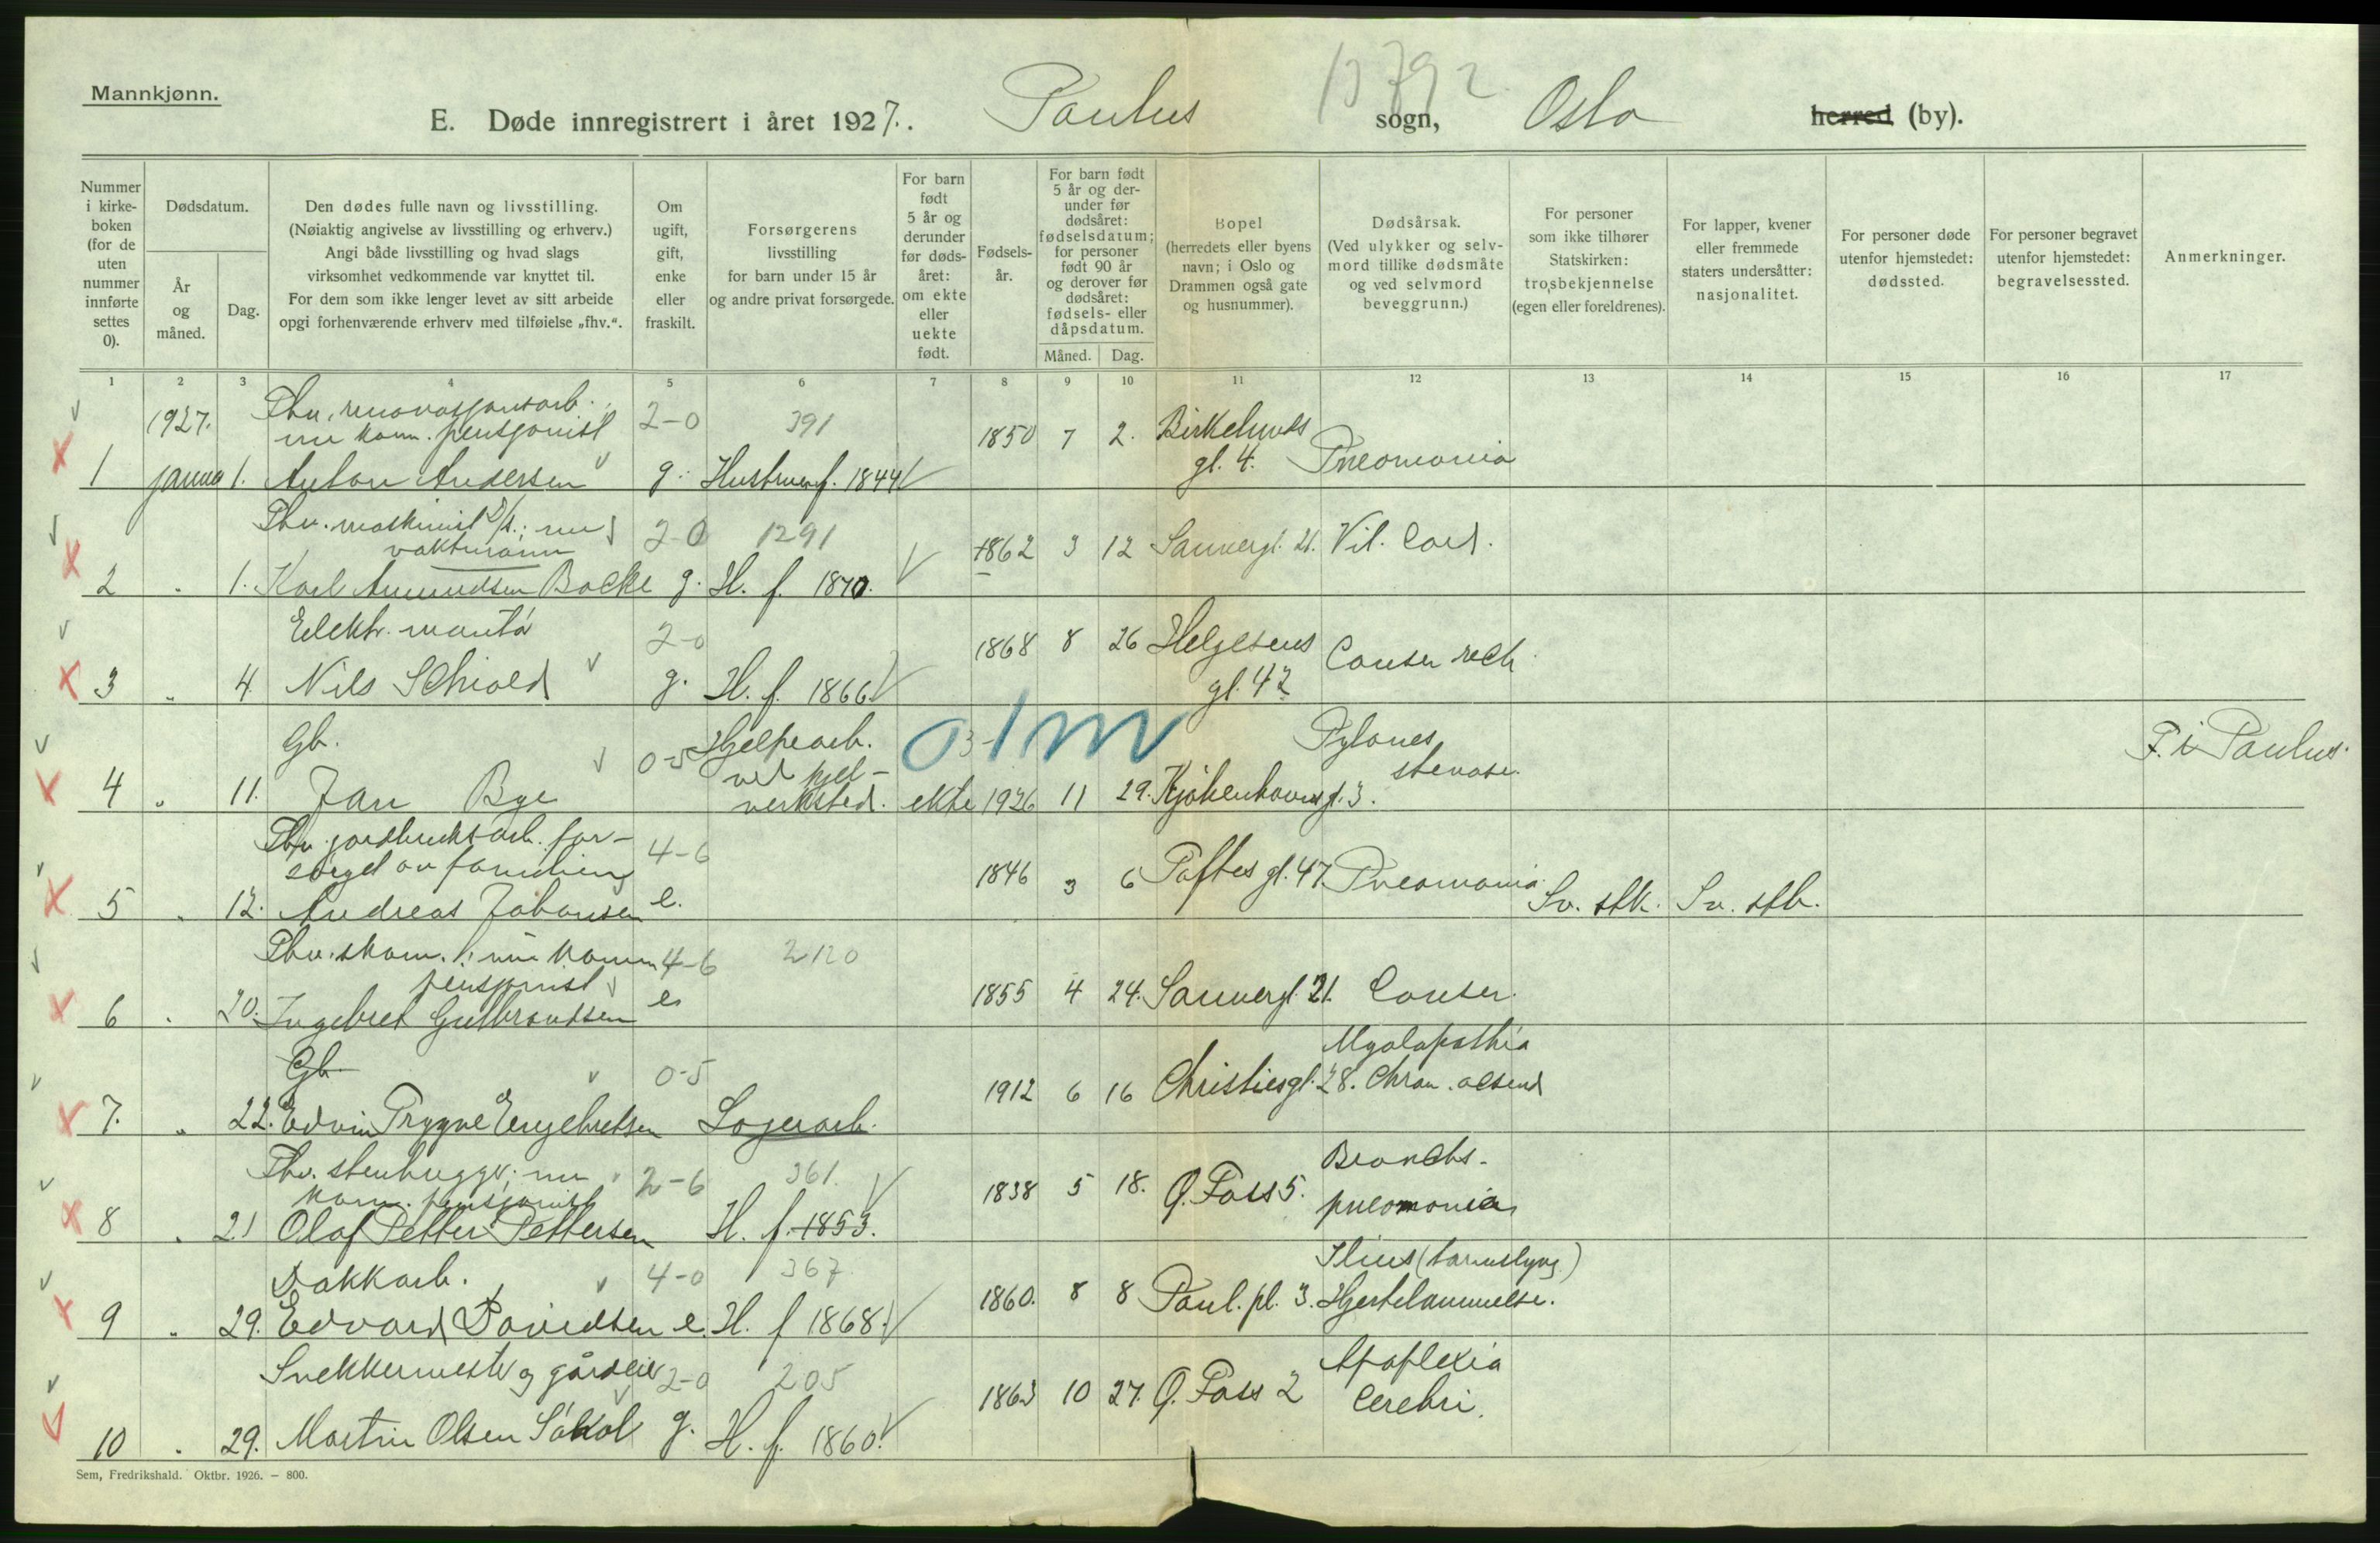 Mannkjønn.
E. Døde innregistrert i året 1927. Paulus sogn, Oslo herred (by).
Nummer i kirkeboken (for de uten nummer innførte settes 0).
Dødsdatum.
År og måned.
Dag.
Den dødes fulle navn og livsstilling.
(Nøiaktig angivelse av livsstilling og erhverv.)
Angi både livsstilling og hvad slags
virksomhet vedkommende var knyttet til.
For dem som ikke lenger levet av sitt arbeide
opgi forhenværende erhverv med tilføielse „fhv.“.
Om ugift, gift, enke eller fraskilt.
Forsørgerens
livsstilling
for barn under 15 år
og andre privat forsørgede.
For barn født 5 år og derunder før dødsåret: om ekte eller uekte født.
Fødselsår.
For barn født 5 år og derunder før dødsåret: fødselsdatum; for personer født 90 år og derover før dødsåret: fødsels- eller dåpsdatum.
Måned.
Dag.
Bopel
(herredets eller byens
navn; i Oslo og
Drammen også gate
og husnummer).
Dødsårsak.
(Ved ulykker og selvmord tillike dødsmåte
og ved selvmord
beveggrunn.)
For personer
som ikke tilhører
Statskirken:
trosbekjennelse
(egen eller foreldrenes).
For lapper, kvener
eller fremmede
staters undersåtter:
nasjonalitet.
For personer døde
utenfor hjemstedet:
dødssted.
For personer begravet
utenfor hjemstedet:
begravelsessted.
Anmerkninger.
1 2 3 4 5 6 7 8 9 10 11 12 13 14 15 16 17
1927. Fhv. renovasjonsarb. 2-0 391
nu kom. pensjonist 1850 7 2. Birkelunds
gt. 4. Pneomonia
1 januar 1. Anton Andersen g. Hustru f. 1844
Fhv. maskinist D/S.; nu 2-0 1291
vaktmann 1862 3 12 Sannergt. 21. Vit. Cord.
2 " 1. Karl Amundsen Backe g. H. f. 1870.
Elektr. montør 2-0 1868 8 26 Helgesens
gt. 42 Cancer rech
3 " 4. Nils Schiold g. H. f. 1866
Gb. 0-5 Hjelpearb. 01m Pylorus
stenose. F. i Paulus.
4 " 11. Jan Bye verksted. ekte 1926 11 29. Kjøbenhavnsgt. 3.
Fhv. jordbruksarb. for-
sørget av familien 4-6 1846 3 6 Toftes gt. 47 Pneomonia
5 " 12. Andreas Johansen e. Sv. stk. Sv. stb.
Fhv. skom.; nu komm. 4-6 2120
pensjonist 1855 4 24. Sannergt. 21. Cancer.
6 " 20. Ingebret Gulbrandsen e
Gb. 0-5 1912 6 16 Christiesgt. 28. Myolopathia
Chron. ascend
7. " 22. Edvin Trygve Engebretsen Lagerarb.
Fhv. stenhugger; nu 2-6 361.
kom. pensjonist 1838 5 18. Q. Foss 5. Bronchs-
pneomonia
8 " 21 Olaf Petter Pettersen H. f. 1853.
Dakkarb. 4-0 367 1860. 8 8 Paul. pl. 3. Ilius (tarmslyng)
Hjertelammelse.
9 " 29. Edvard Davidsen e. H. f 1868.
Snekkermester og gårdeier 2-0 205 1863 10 27. Q. Foss 2 Apoplexia
Cerebri.
10 " 29. Martin Olsen Søkol g. H. f. 1860.
Sem, Fredrikshald. Oktbr. 1926. – 800.